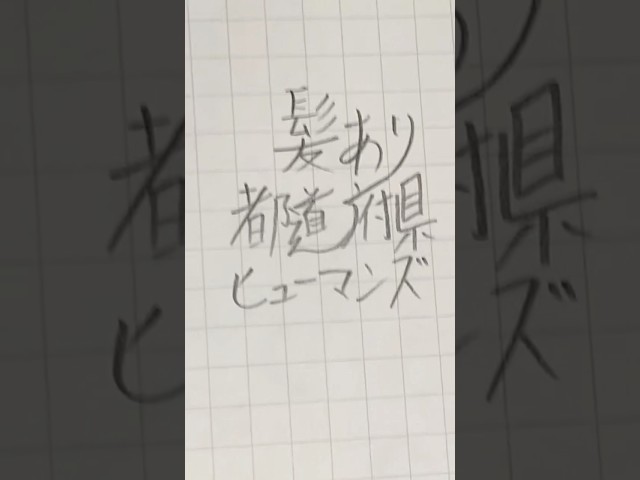 髪あり
都道府県
ヒューマンズ